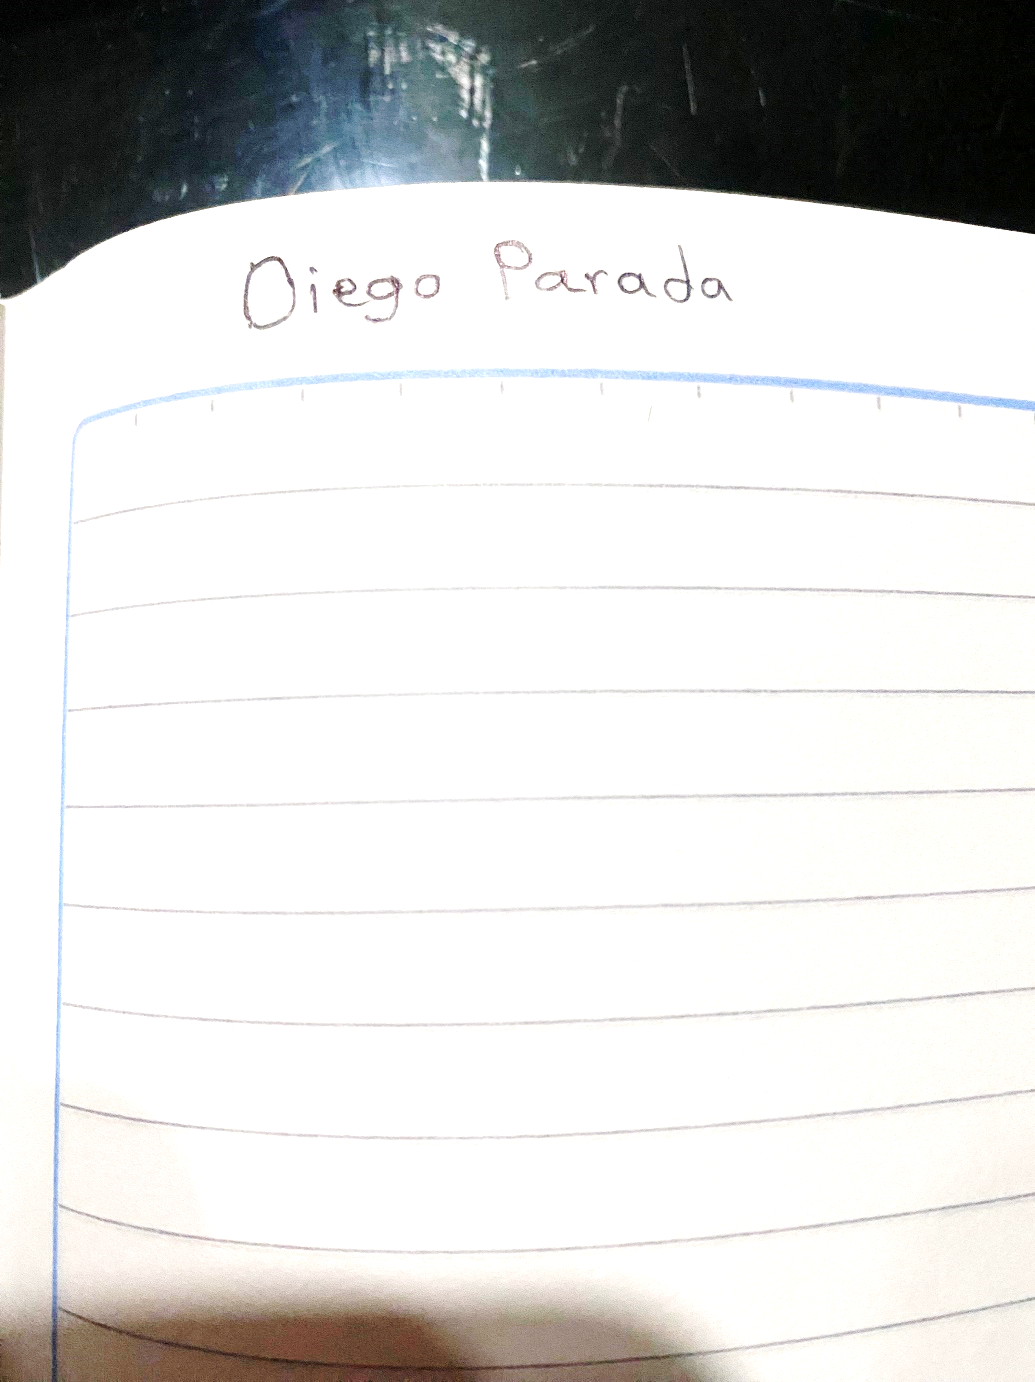 Diego Parada